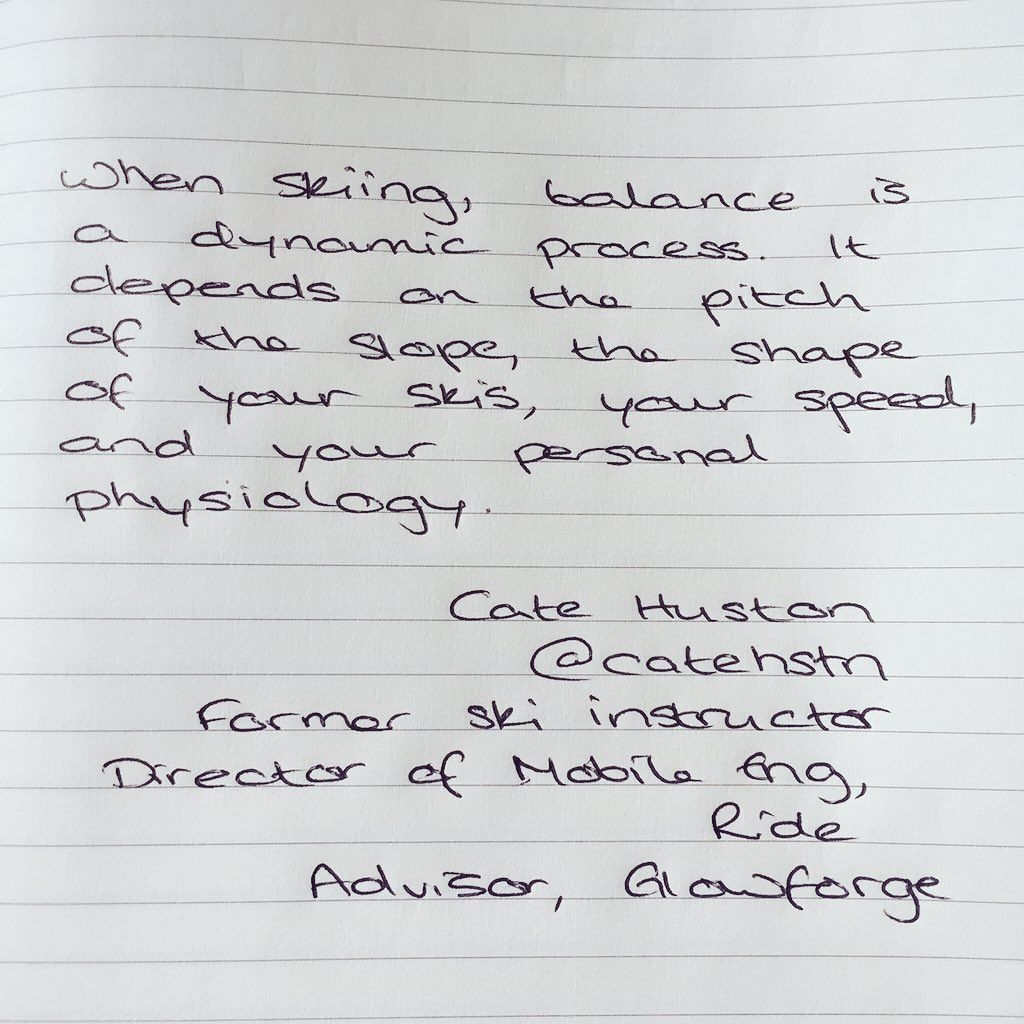 When skiing, balance is
a dynamic process. It
depends on the pitch
of the slope, the shape
of your skis, your speed,
and your personal
physiology.
Cate Huston
@catehstn
Former ski instructor
Director of Mobile Eng,
Ride
Advisor, Glowforge